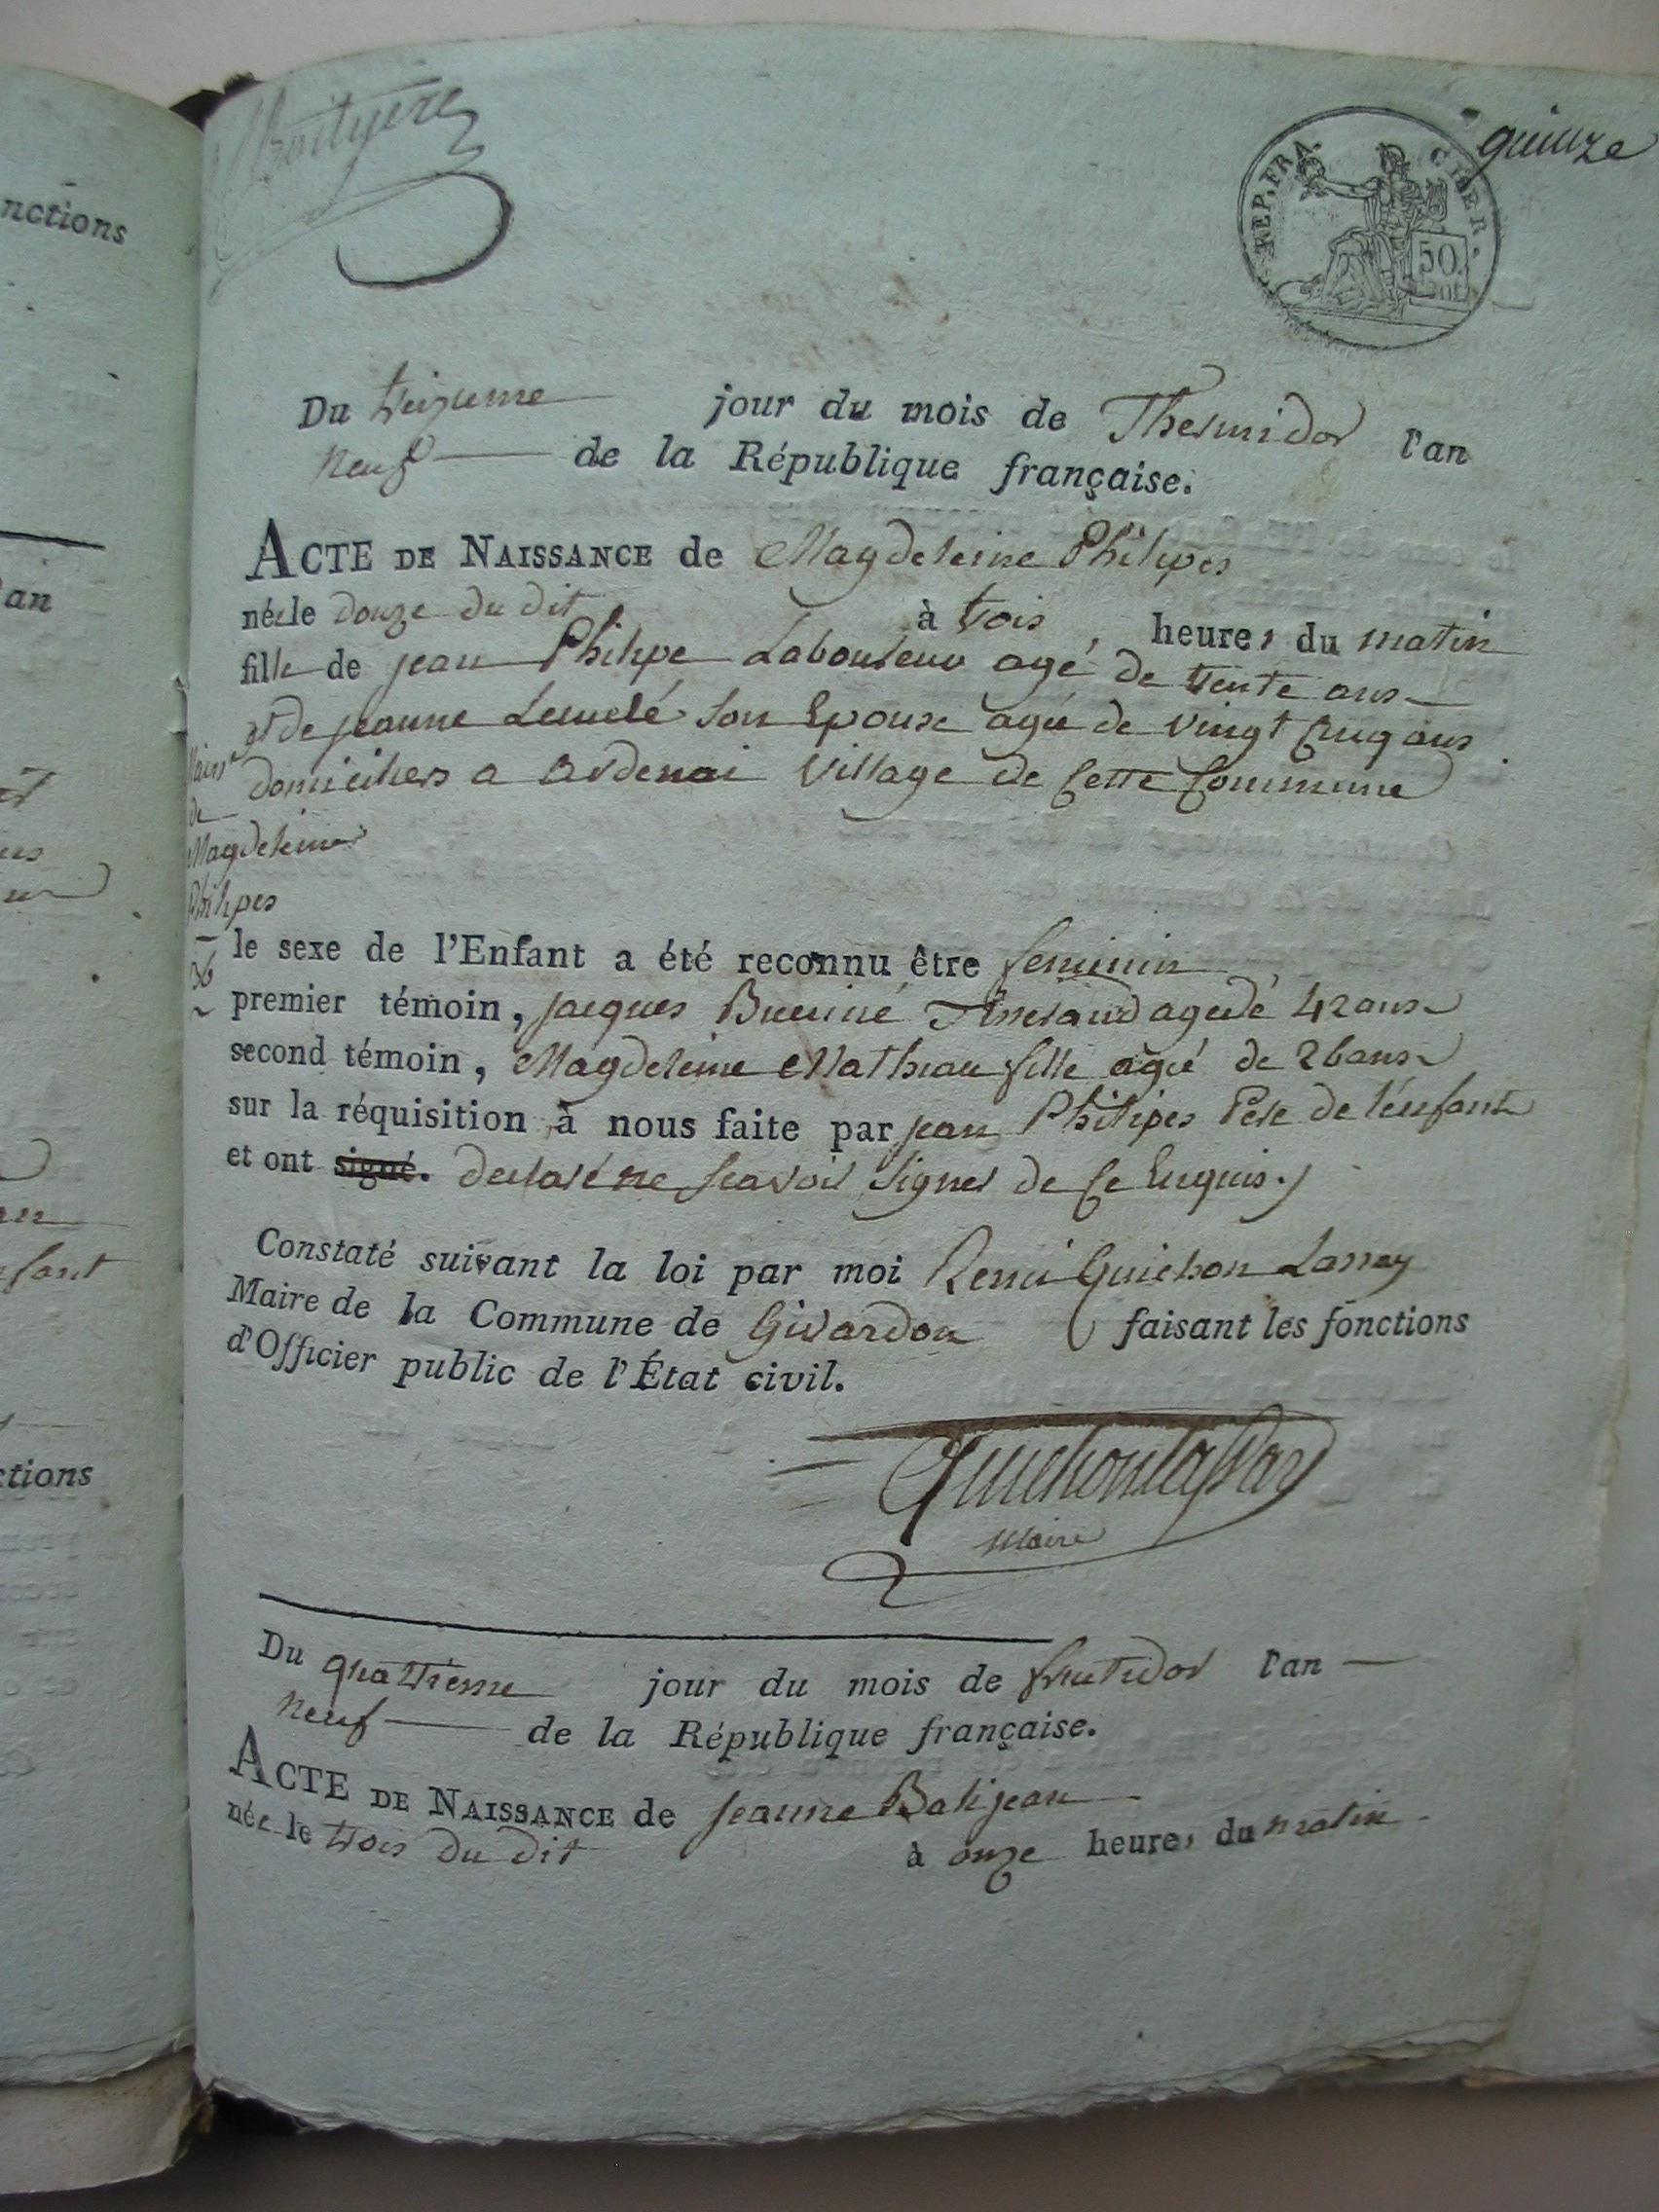 quinze
REP. FRA.
50
nctions
Du treizieme jour du mois de Thermidor l'an
neuf de la République française.
ACTE DE NAISSANCE de Magdeleine Philipes
née le douze du dit à trois heures du matin
fille de jean Philipe Laboureur agé de trente ans
et de jeanne son Epouse agée de vingt cinq ans
domiciliers a Ardenai Village de Cette Commune
de
Magdeleine
Philipes
le sexe de l'Enfant a été reconnu être feminin
premier témoin, jacques Tisserand agé dé 42 ans
second témoin, Magdeleine Matheau fille agée de 26 ans
sur la réquisition à nous faite par jean Philipes Pere de l'enfant
et ont signé. declaré ne scavoir signer de ce Enquis./
Constaté suivant la loi par moi Remi Guichon Lassay
Maire de la Commune de Givardon faisant les fonctions
d'Officier public de l'État civil.
Guichonlassay
Maire
Du quatrieme jour du mois de fructidor l'an
neuf de la République française.
ACTE DE NAISSANCE de jeanne Balijeau
née le trois du dit à onze heures du matin
an
fant
ctions